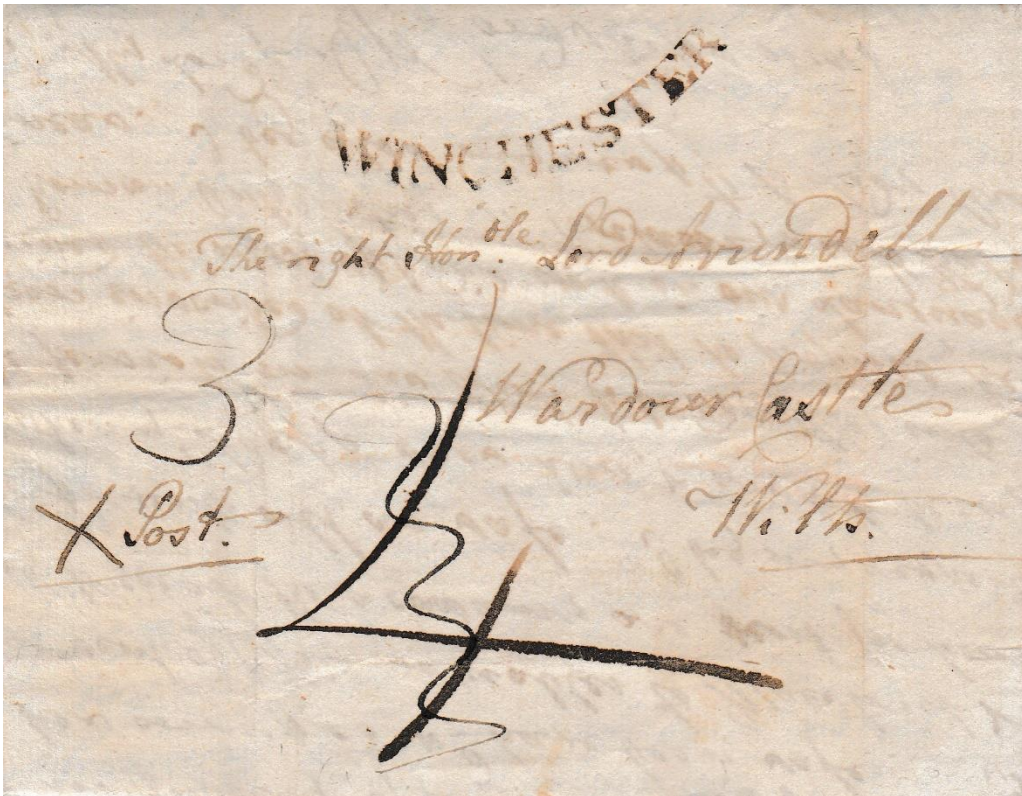 WINCHESTER
The right Hon.ble Lord Arundell
3
Wardour Castle
X Post.
Wilts.
4